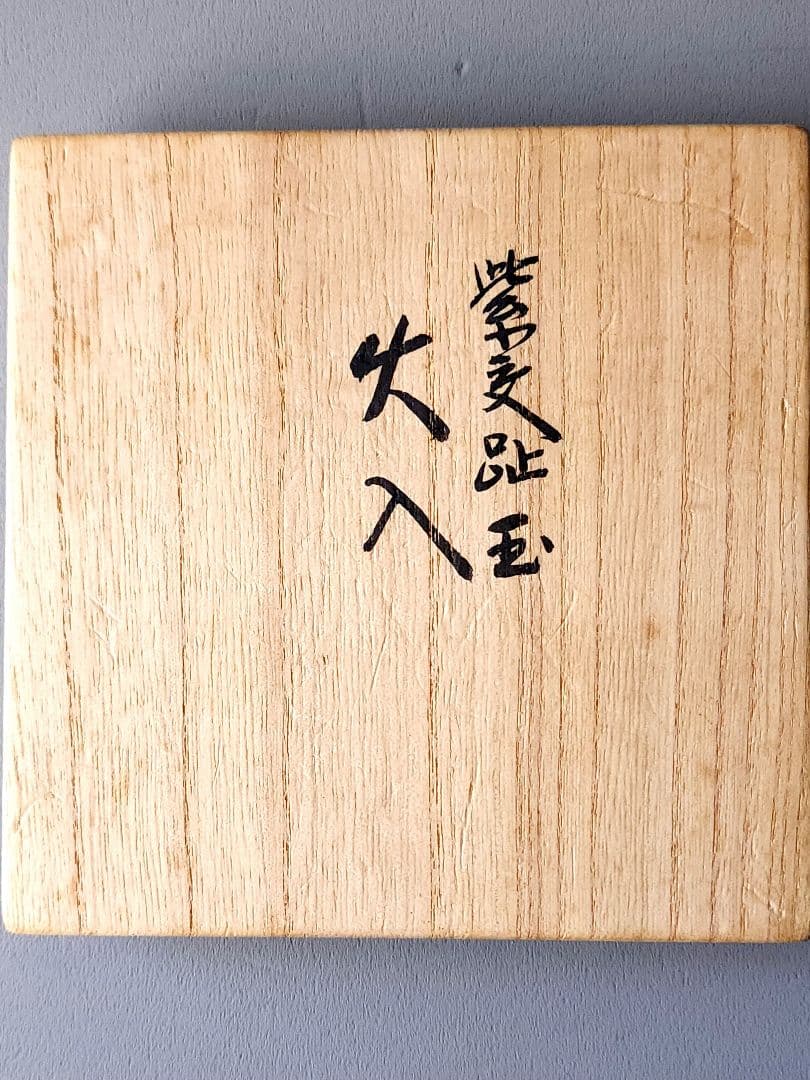 紫交趾玉
火入